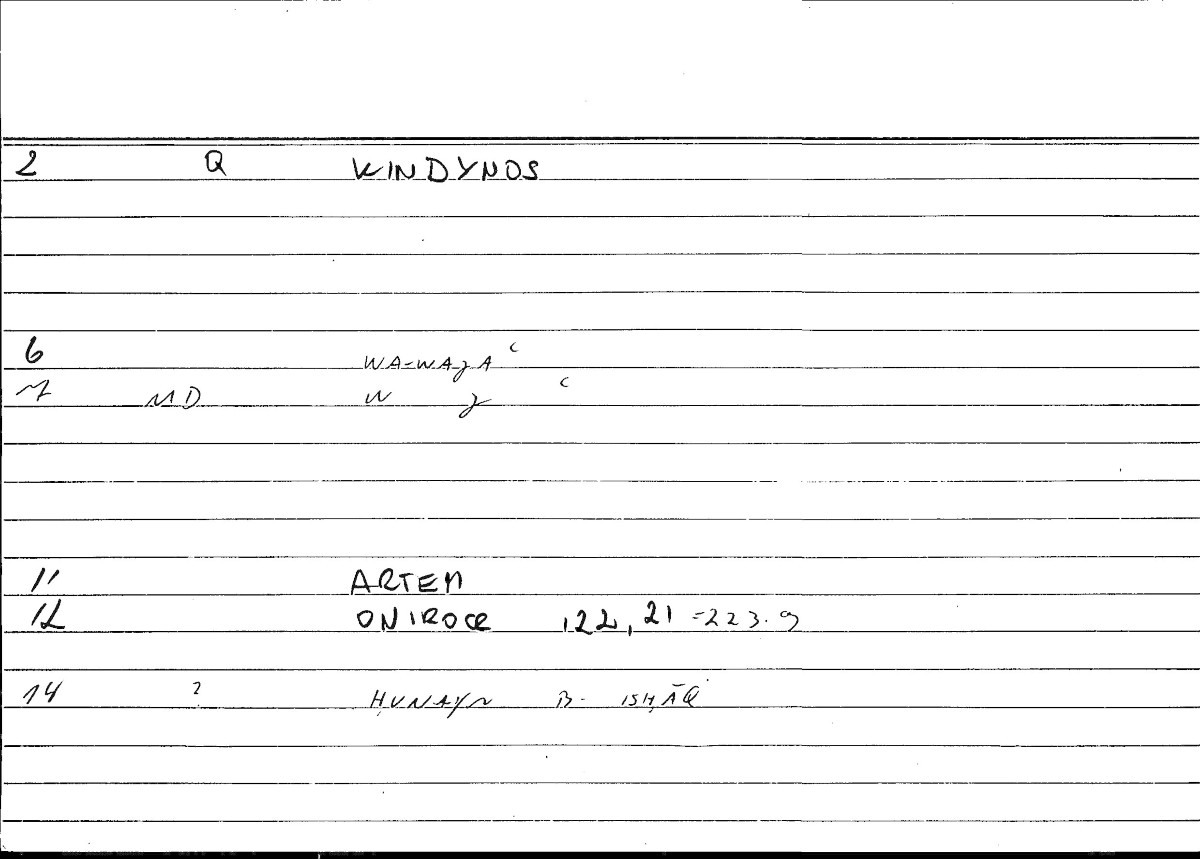 2 Q KINDYNOS
6 WA-WAJA ʿ
7 MD W J ʿ
11 ARTEM
12 ONIROCR 122, 21 =223.9
14 ? ḤUNAYN B. ISḤĀQ